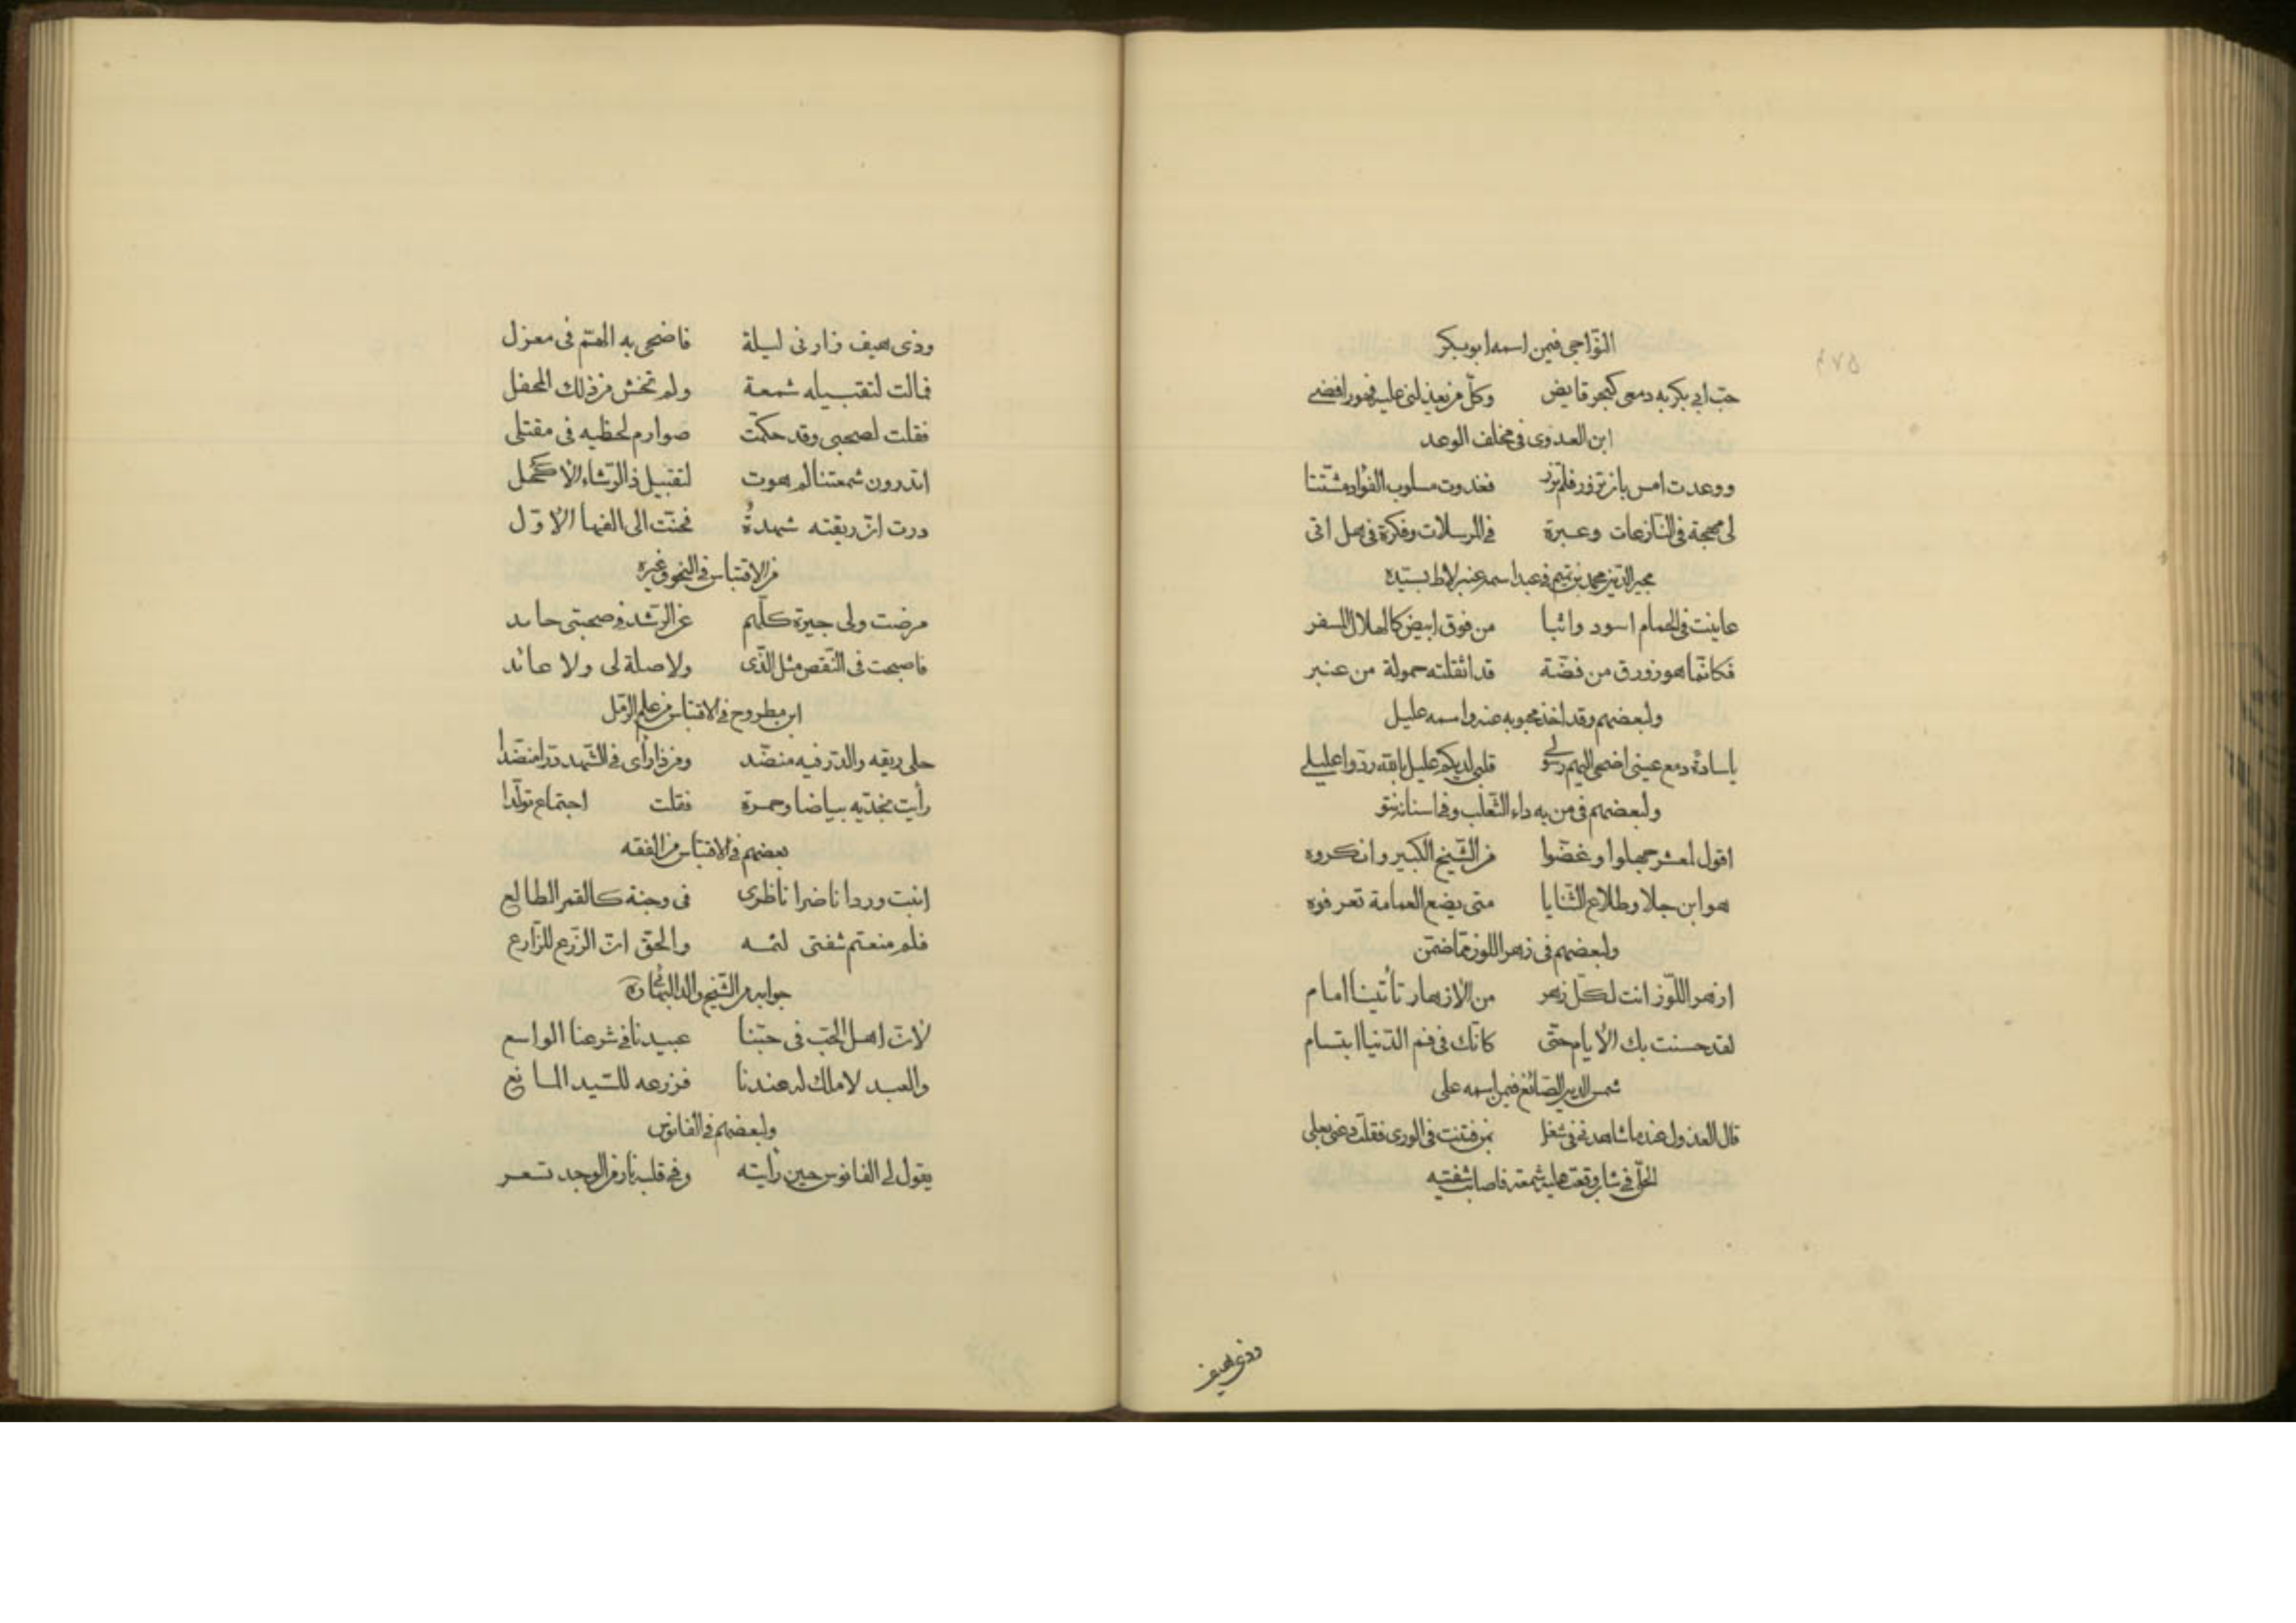 النّواجى فيمن اسمه ابو بكر
حبّ ابى بكر به دمعى كبحر فايض وكلّ من يعذلنى عليه فهو رافضى
ابن العدوى فى مخلف الوعد
ووعدت امس بان تزور فلم تزر فغدوت مسلوب الفؤاد مشتّتا
لى مهجة فى النّازعات وعبرة فى المرسلات وفكرة فى هل اتى
مجير الدّين محمد بن تميم فى عبد اسمه عنبر لاط بسيّده
عاينت فى الحمام اسود واثبا من فوق ابيض كالهلال المسفر
فكانّما هو زورق من فضّة قد اثقلته حمولة من عنبر
ولبعضهم وقد اخذ محبوبه عنه واسمه عليل
يا سادة دمع عينى اضحى اليهم رسولى قلبى لديكم عليل بالله ردّوا عليلى
ولبعضهم فى من به داء الثّعلب وفى اسنانه نتو
اقول لمعشر جهلوا وغضّوا من الشّيخ الكبير وانكروه
هو ابن جلا وطلاع الثّنايا متى يضع العمامة تعرفوه
ولبعضهم فى زهر اللوز مما ضمّن
ازهر اللّوز انت لكلّ زهر من الازهار تأتينا امام
لقد حسنت بك الأيام حتّى كانّك فى فم الدّنيا ابتسام
شمس الدين الصّائغ فيمن اسمه على
قال العذول عندما شاهدنى فى شغل بمن فتنت فى الورى فقلت دعنى بعلى
الحلّى فى شاب وقعت عليه شمعة فاصابت شفتيه
وذى هيف
وذى هيف زارنى ليلة فاضحى به الهمّ فى معزل
فمالت لتقبيله شمعة ولم تخش من ذلك المحفل
فقلت لصحبى وقد حكمّت صوارم لحظيه فى مقتلى
اتدرون شمعتنا لم هوت لتقبيل ذا الرّشاء الأكحل
درت انّ ريقته شهدةٌ فحنّت الى الفها الأوّل
من الاقتباس فى النحو وغيره
مرضت ولى جيرة كلّهم عن الرّشد فى صحبتى حايد
فاصبحت فى النّقص مثل الّذى ولا صلة لى ولا عائد
ابن مطروح فى الاقتباس من علم الرّمل
حلى ريقه والدّر فيه منضّد ومن ذا رأى فى الشّهد درّا منضّدا
رأيت بخدّيه بياضا وحمرة فقلت اجتماع تولّدا
بعضهم فى الاقتباس من الفقه
انبت وردا ناضرا ناظرى فى وجنة كالقمر الطالع
فلم منعتم شفتى لثمه والحقّ انّ الزّرع للزّارع
جوابه من الشّيخ والد البهائى ره
لأنّ اهل الحبّ فى حبّنا عبيدنا فى شرعنا الواسع
والعبد لا ملك له عندنا فزرعه للسّيد المانع
ولبعضهم فى الفانوس
يقول لى الفانوس حين رأيته وفى قلبه نار من الوجد تسعر